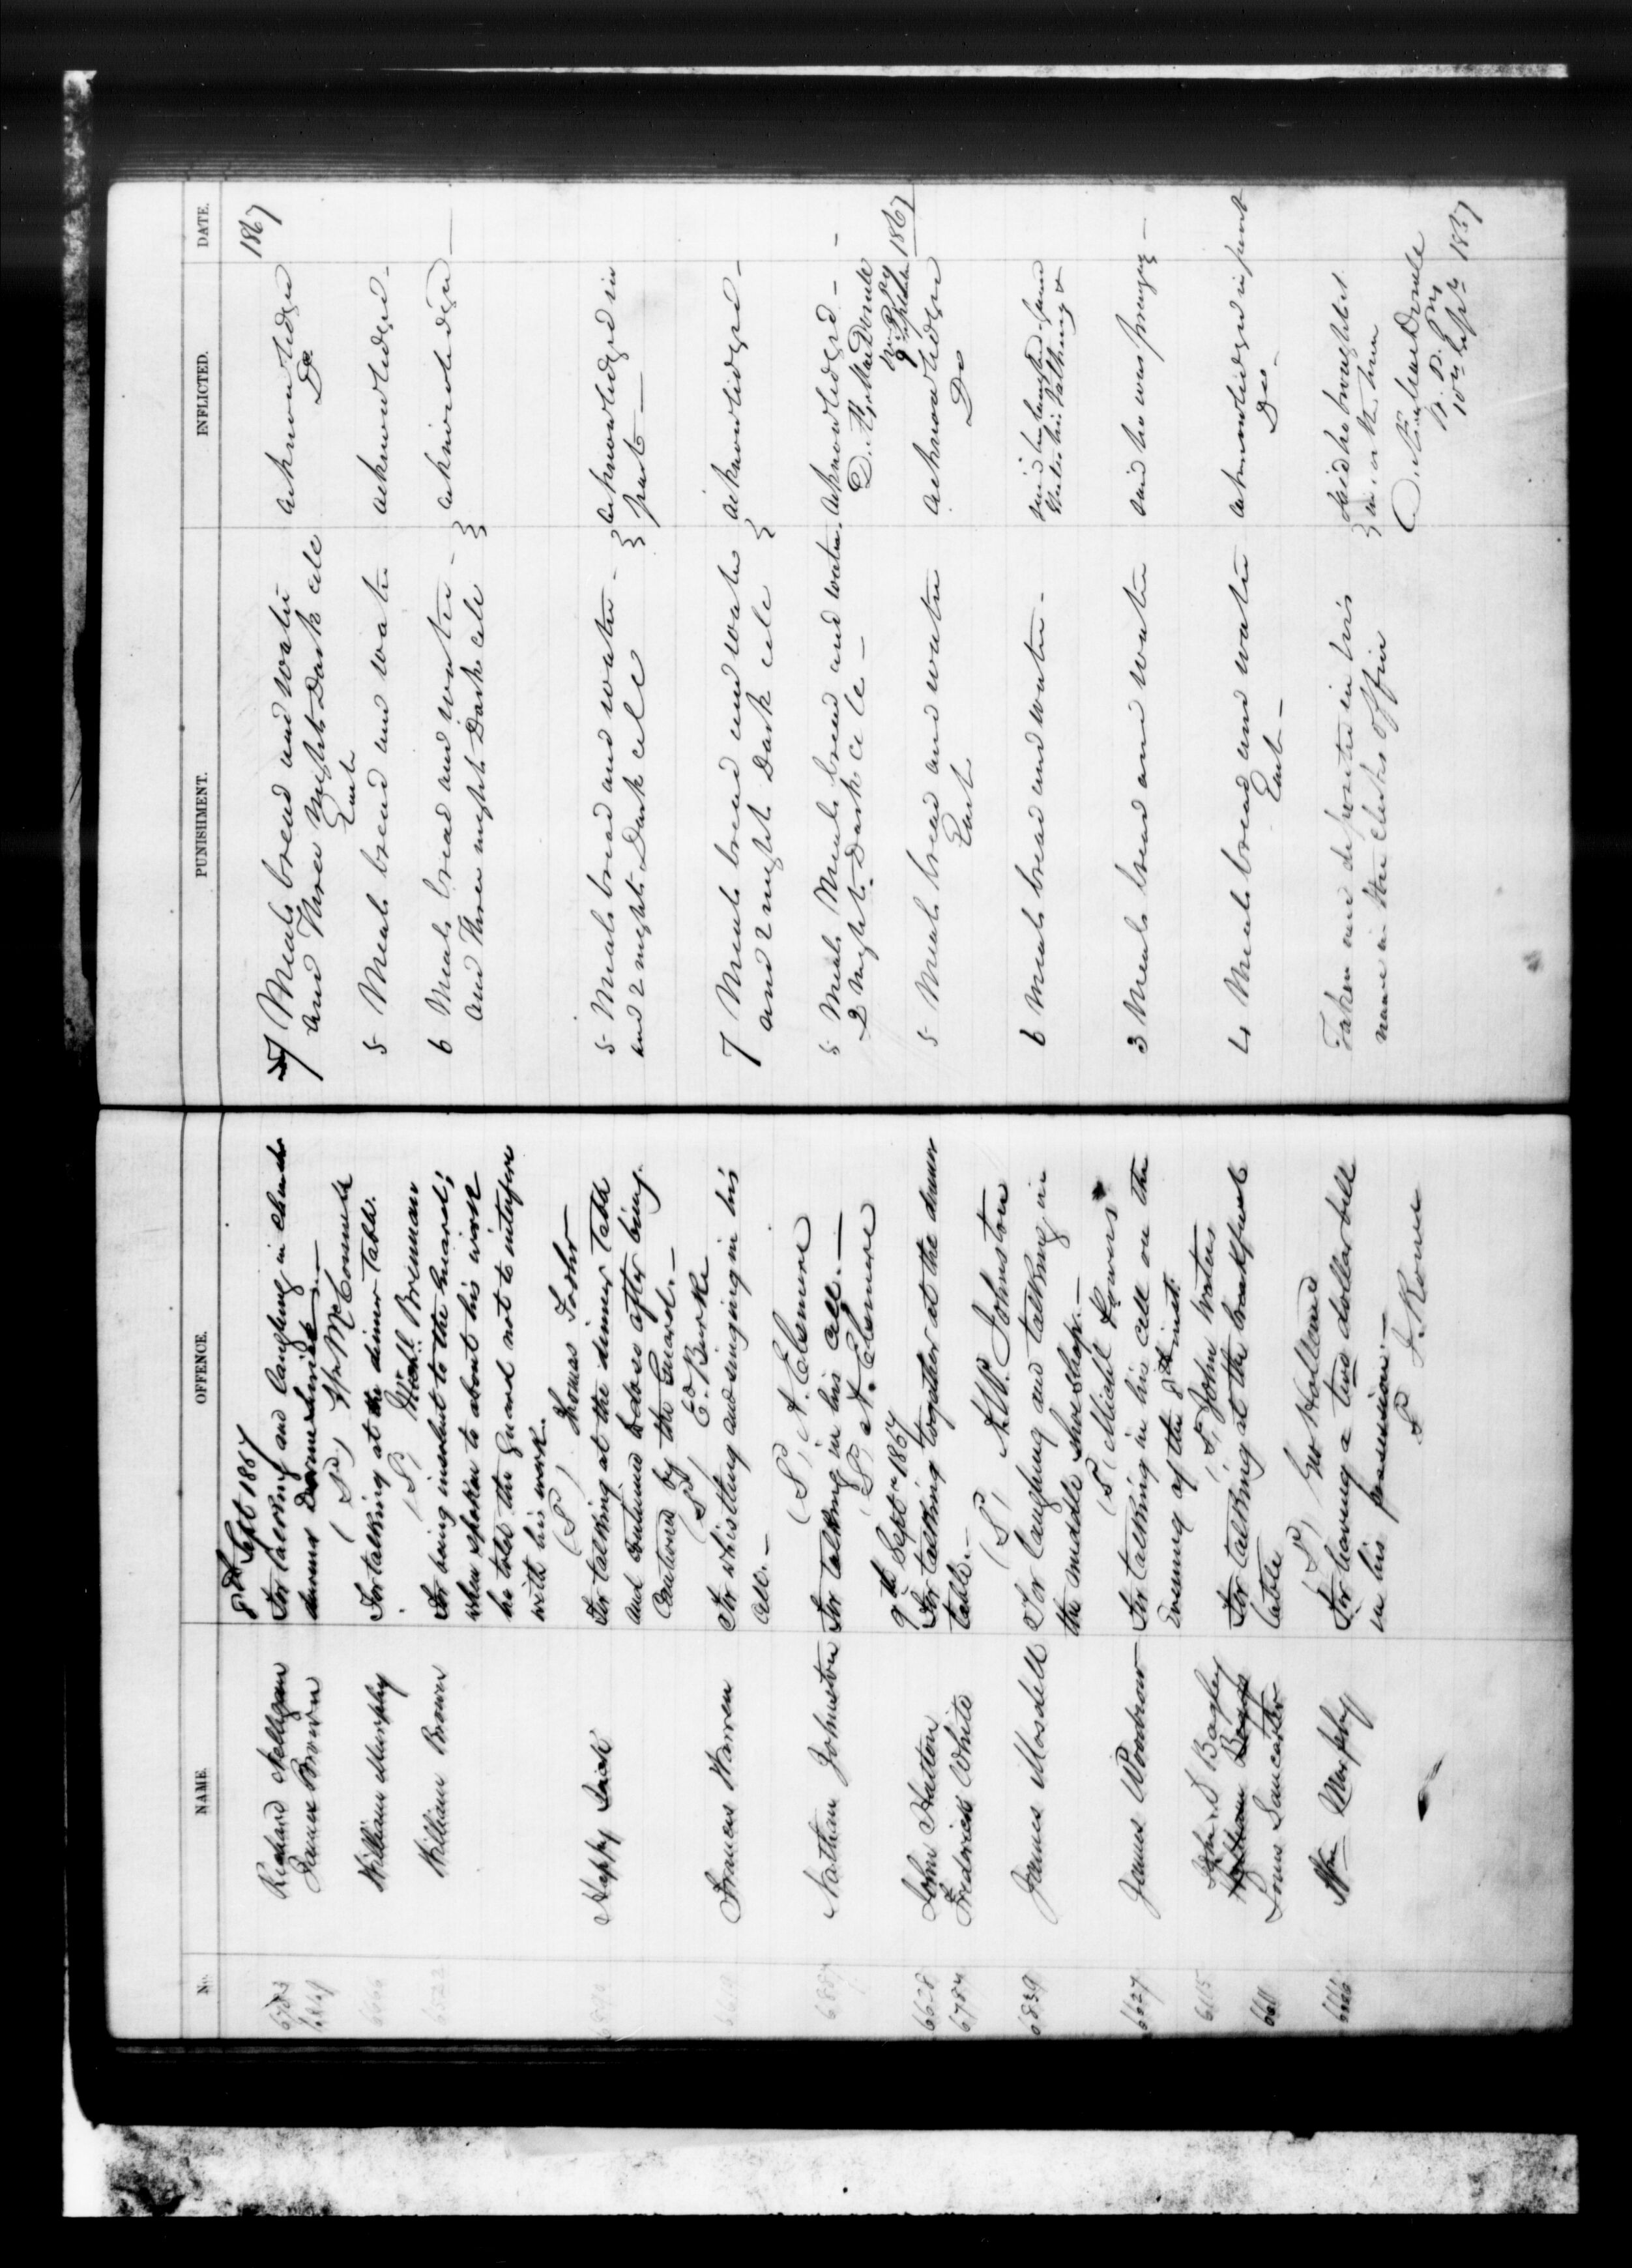 No. NAME. OFFENCE. PUNISHMENT. INFLICTED. DATE.
8th Sept 1867 1867
Richard Nelligan For talking and laughing in church 7 Meals bread and water acknowledged
James Brown during Divine Service.— and three nights Dark cell Do
(S) Wm McConnell Each
William Murphy For talking at the dinner Table. 5 Meals bread and water acknowledged-
(S) Michl. Brennan
William Brown For being insolent to the Guard; 6 Meals bread and water - acknowledged
when spoken to about his work and three nights Dark cell
he told the Guard not to interfere
with his work.
(S) Thomas
Happy Jack For talking at the dinner Table 5 Meals bread and water - acknowledged in
and continued to do so after being and 2 nights Dark cell part
Cautioned by the Guard.—
(S) Ed. Burke
Frances Warren For whistling and singing in his 7 Meals bread and water acknowledged-
cell.— and 2 nights Dark cell
(S) A. Elsmere
Nathan Johnston For talking in his cell.— 5 Meals bread and water acknowledged-
(S) A. Elsmere 2 nights Dark cell -
9th Septr 1867 1867
6628 John Hutton For talking together at the dinner 5 Meals bread and water acknowledged
6784 Fredrick White table.— Each Do
(S) Johnston
6839 James Mosdell For laughing and talking in 6 Meals bread and water -
the middle shoe shop.—
(S) Michl Powers
6627 James Woodrow For talking in his cell on the 3 Meals bread and water said he was praying -
Evening of the 8th inst.
(S) John Waters
6115 John S Bagley For talking at the breakfast 4 Meals bread and water acknowledged in part
Louis Lancaster table Each Do -
(S) Holland
Wm Murphy For having a two dollar bill Taken and deposited in his said he brought it
in his possession.— name in the Clerks office in with him
S J. Rowe
MacDonell
10th Sept 1867